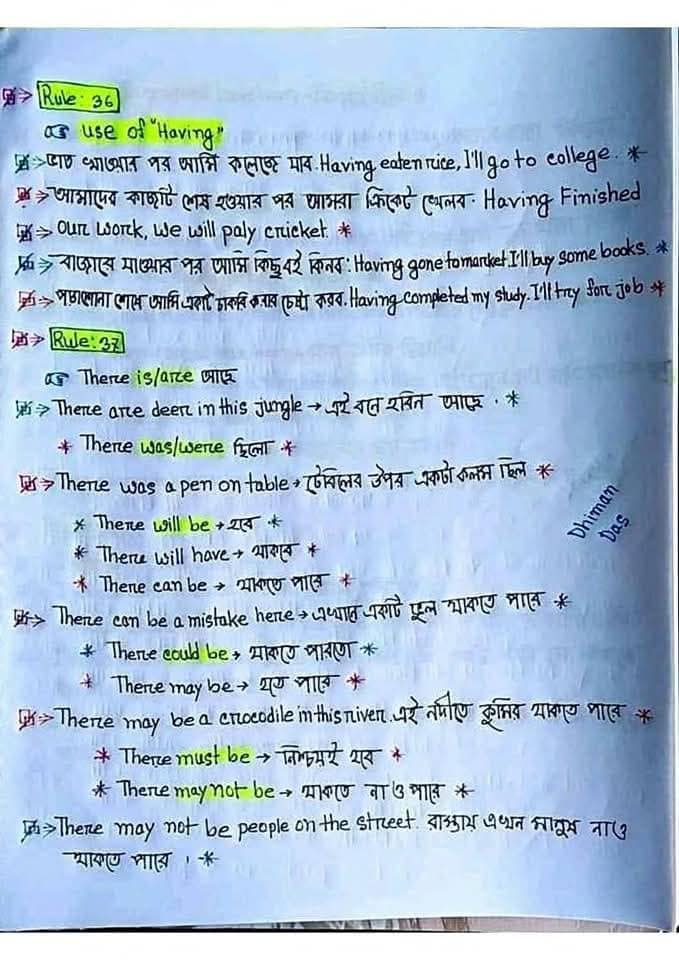 Rule: 36
use of "Having"
ভাত খাওয়ার পর আমি কলেজে যাব. Having eaten rice, I'll go to college. *
আমাদের কাজটি শেষ হওয়ার পর আমরা ক্রিকেট খেলব. Having Finished
our work, we will paly cricket. *
বাজারে যাওয়ার পর আমি কিছু বই কিনব: Having gone to market I'll buy some books. *
পড়াশোনা শেষে আমি একটা চাকরি করার চেষ্টা করব. Having completed my study. I'll try for job *
Rule: 37
There is/are আছে
There are deer in this jungle → এই বনে হরিন আছে . *
* There was/were ছিলো *
There was a pen on table → টেবিলের উপর একটা কলম ছিল *
* There will be → হবে *
* There will have → থাকবে *
* There can be → থাকতে পারে *
Dhiman
Das
There can be a mistake here → এখানে একটি ভুল থাকতে পারে *
* There could be → থাকতে পারতো *
* There may be → হতে পারে *
There may be a crocodile in this river. এই নদীতে কুমির থাকতে পারে *
* There must be → নিশ্চয়ই হবে *
* There may not be → থাকতে না ও পারে *
There may not be people on the street. রাস্তায় এখন মানুষ নাও
থাকতে পারে । *